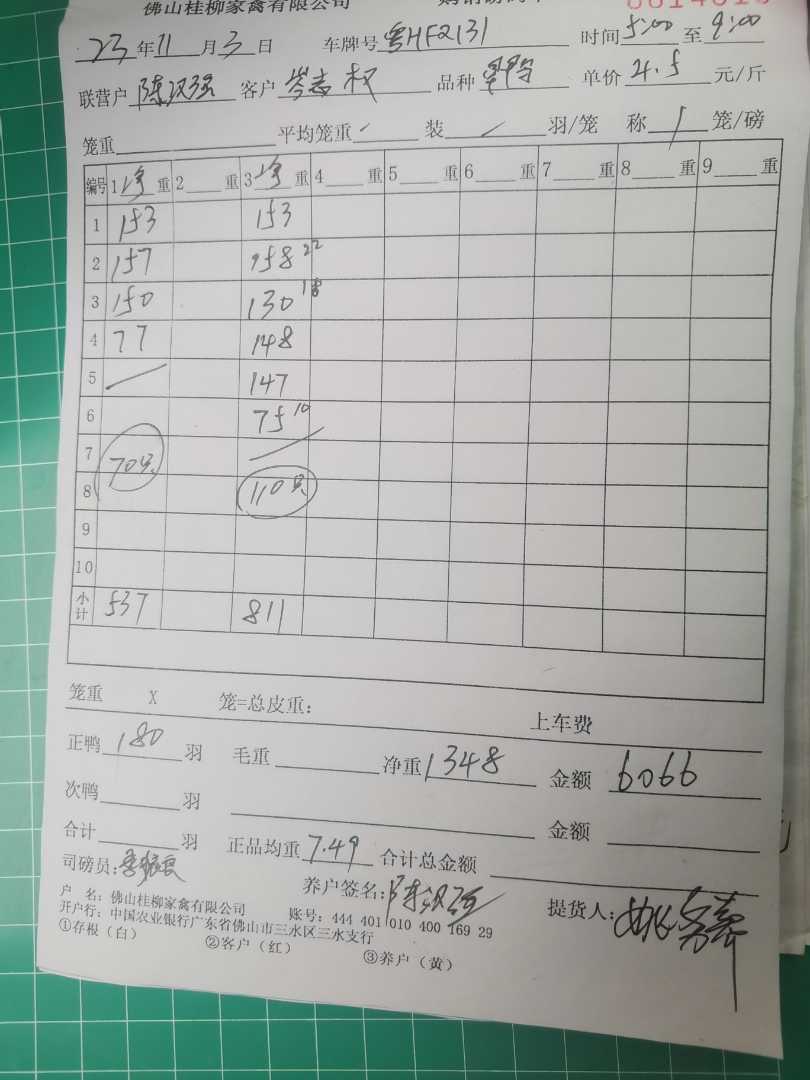 佛山桂柳家禽有限公司
23年11月3日 车牌号粤HF2131 时间5:00至9:00
联营户陈汉强 客户岑志权 品种 单价4.5元/斤
笼重 平均笼重 装 羽/笼 称1笼/磅
编号 1净重 2重 3净重 4重 5重 6重 7重 8重 9重
1 153 153
2 157 158 22
3 150 130 18
4 77 148
5 147
6 75 10
7 70只
8 110只
9
10
小计 537 811
笼重 X 笼=总皮重: 上车费
正鸭180羽 毛重 净重1348 金额6066
次鸭 羽 金额
合计 羽 正品均重7.49 合计总金额
司磅员: 养户签名:陈汉强 提货人:
户 名: 佛山桂柳家禽有限公司 账号: 444 401 010 400 169 29
开户行: 中国农业银行广东省佛山市三水区三水支行
①存根(白) ②客户(红) ③养户(黄)